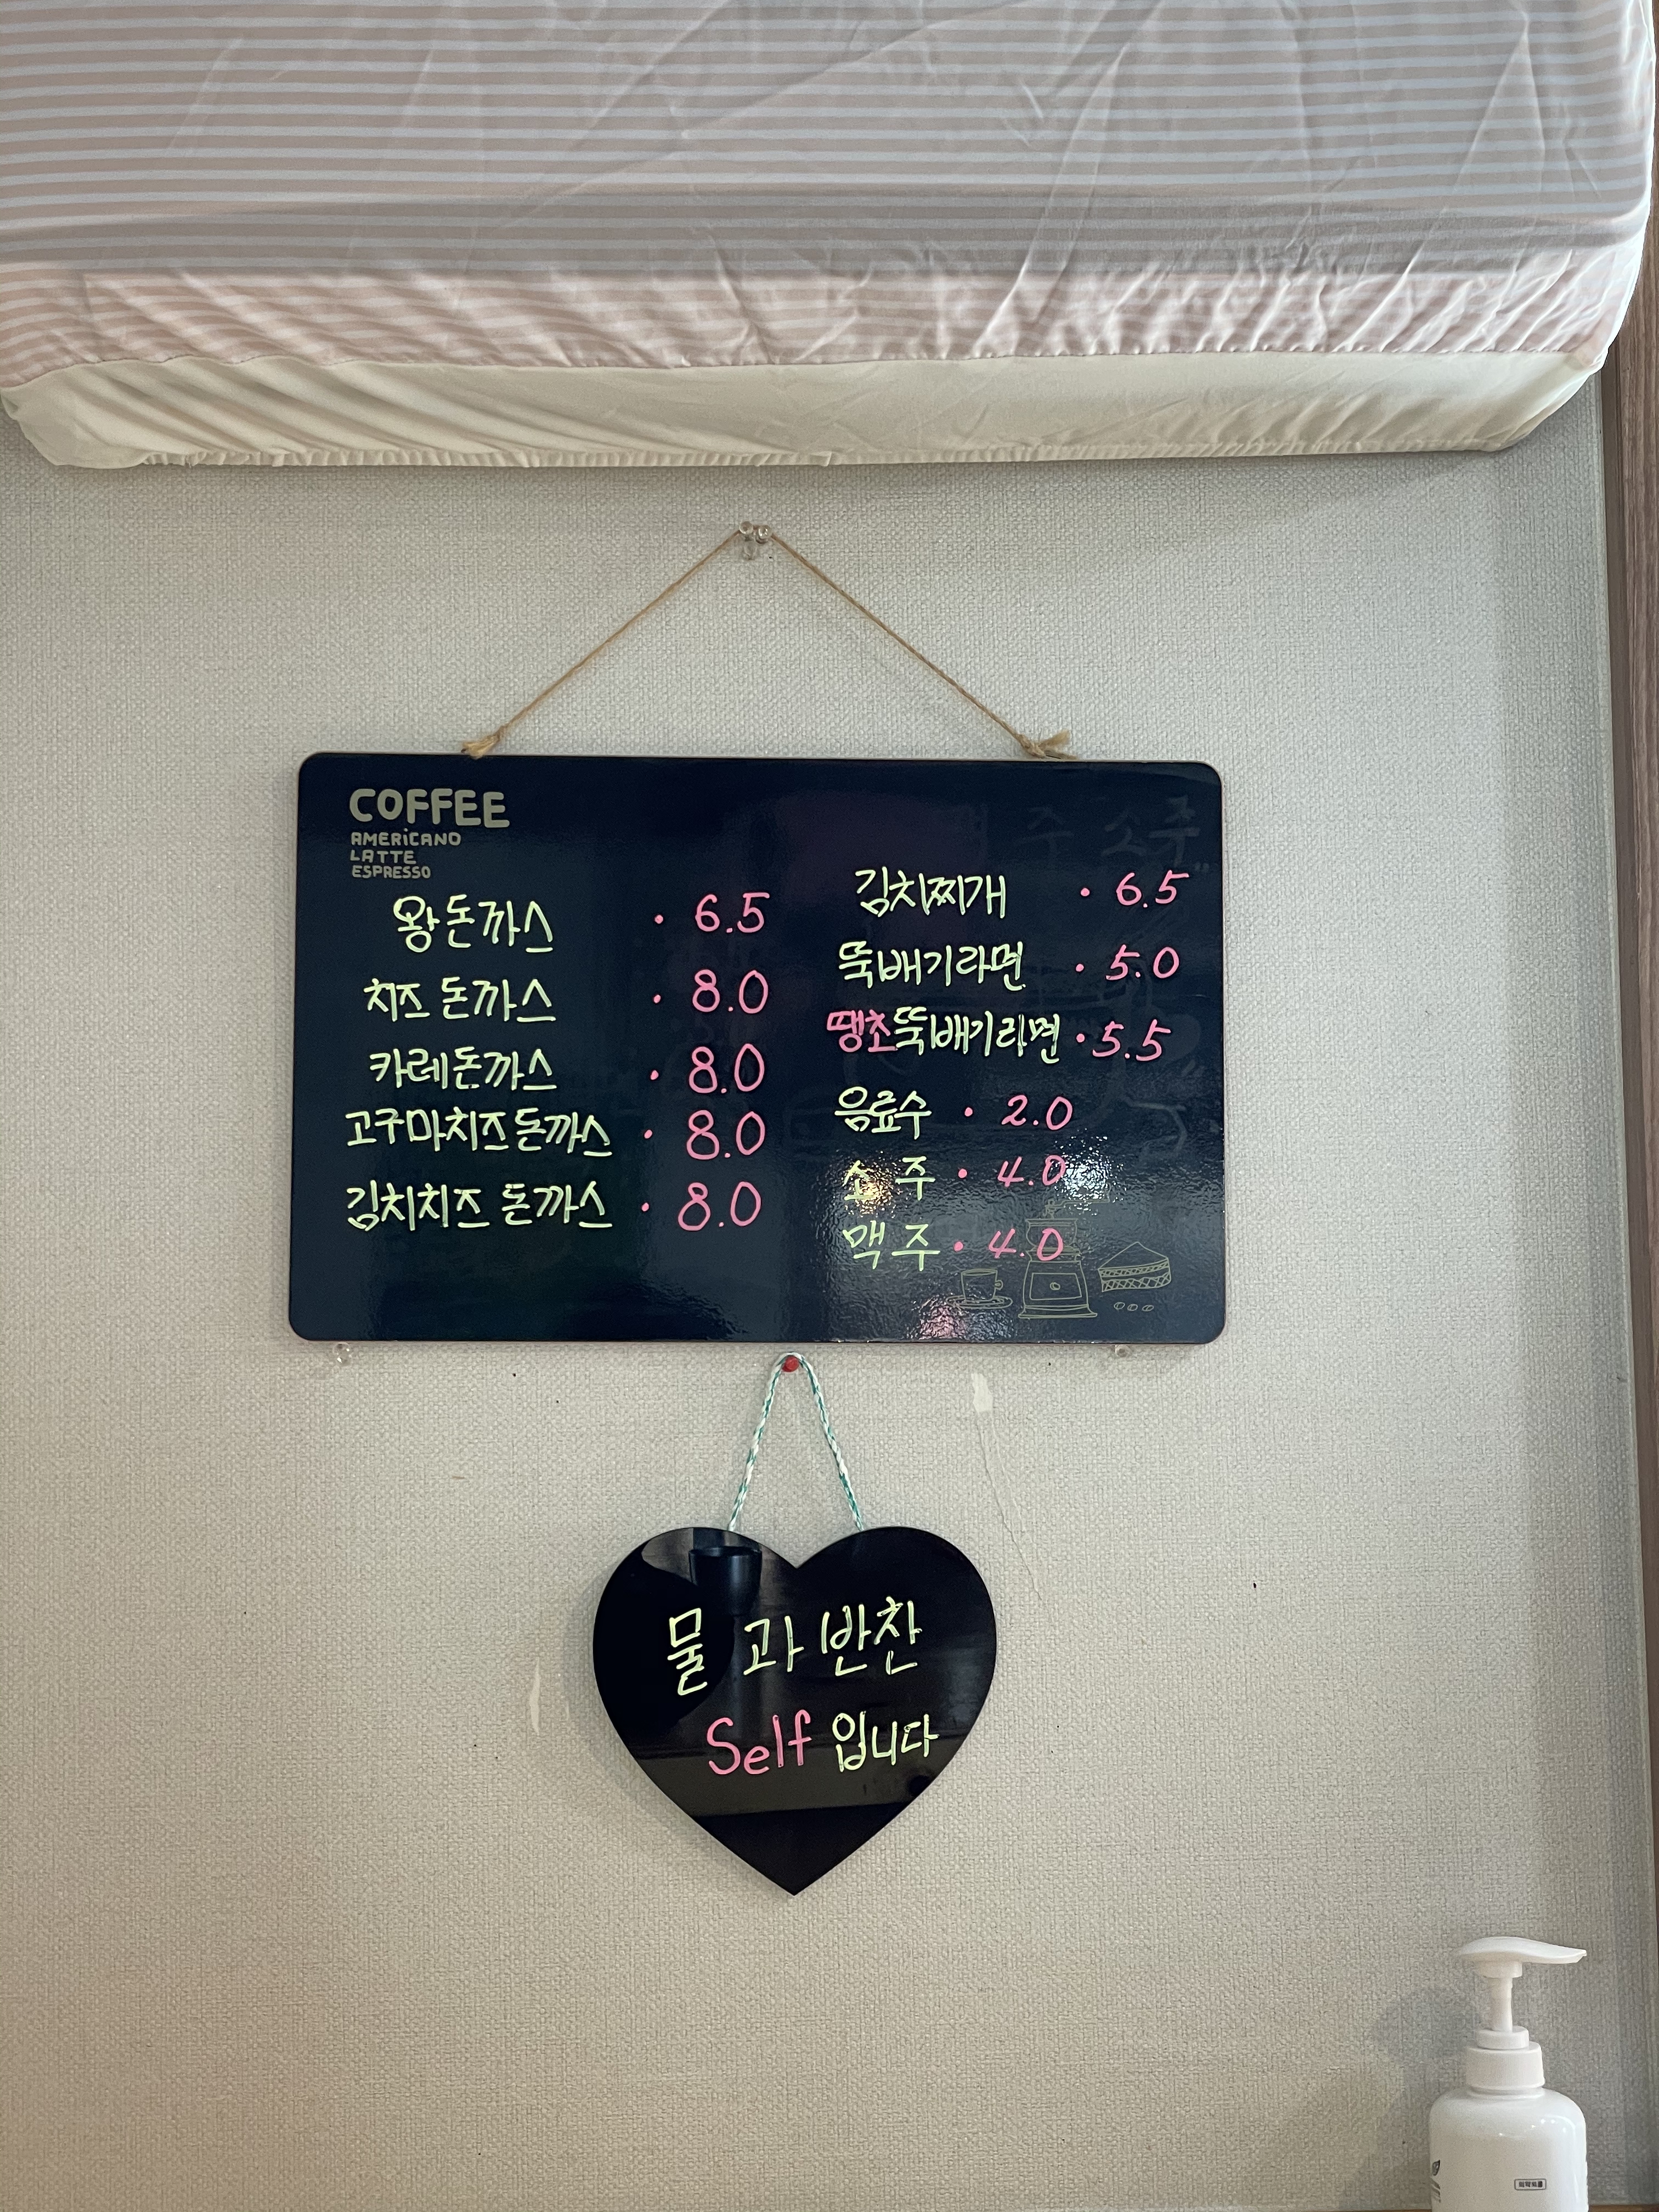 COFFEE
AMERICANO
LATTE
ESPRESSO
왕돈까스 · 6.5
치즈 돈까스 · 8.0
카레돈까스 · 8.0
고구마치즈돈까스 · 8.0
김치치즈 돈까스 · 8.0
김치찌개 · 6.5
뚝배기라면 · 5.0
땡초뚝배기라면 · 5.5
음료수 · 2.0
소 주 · 4.0
맥 주 · 4.0
물 과 반찬
Self 입니다